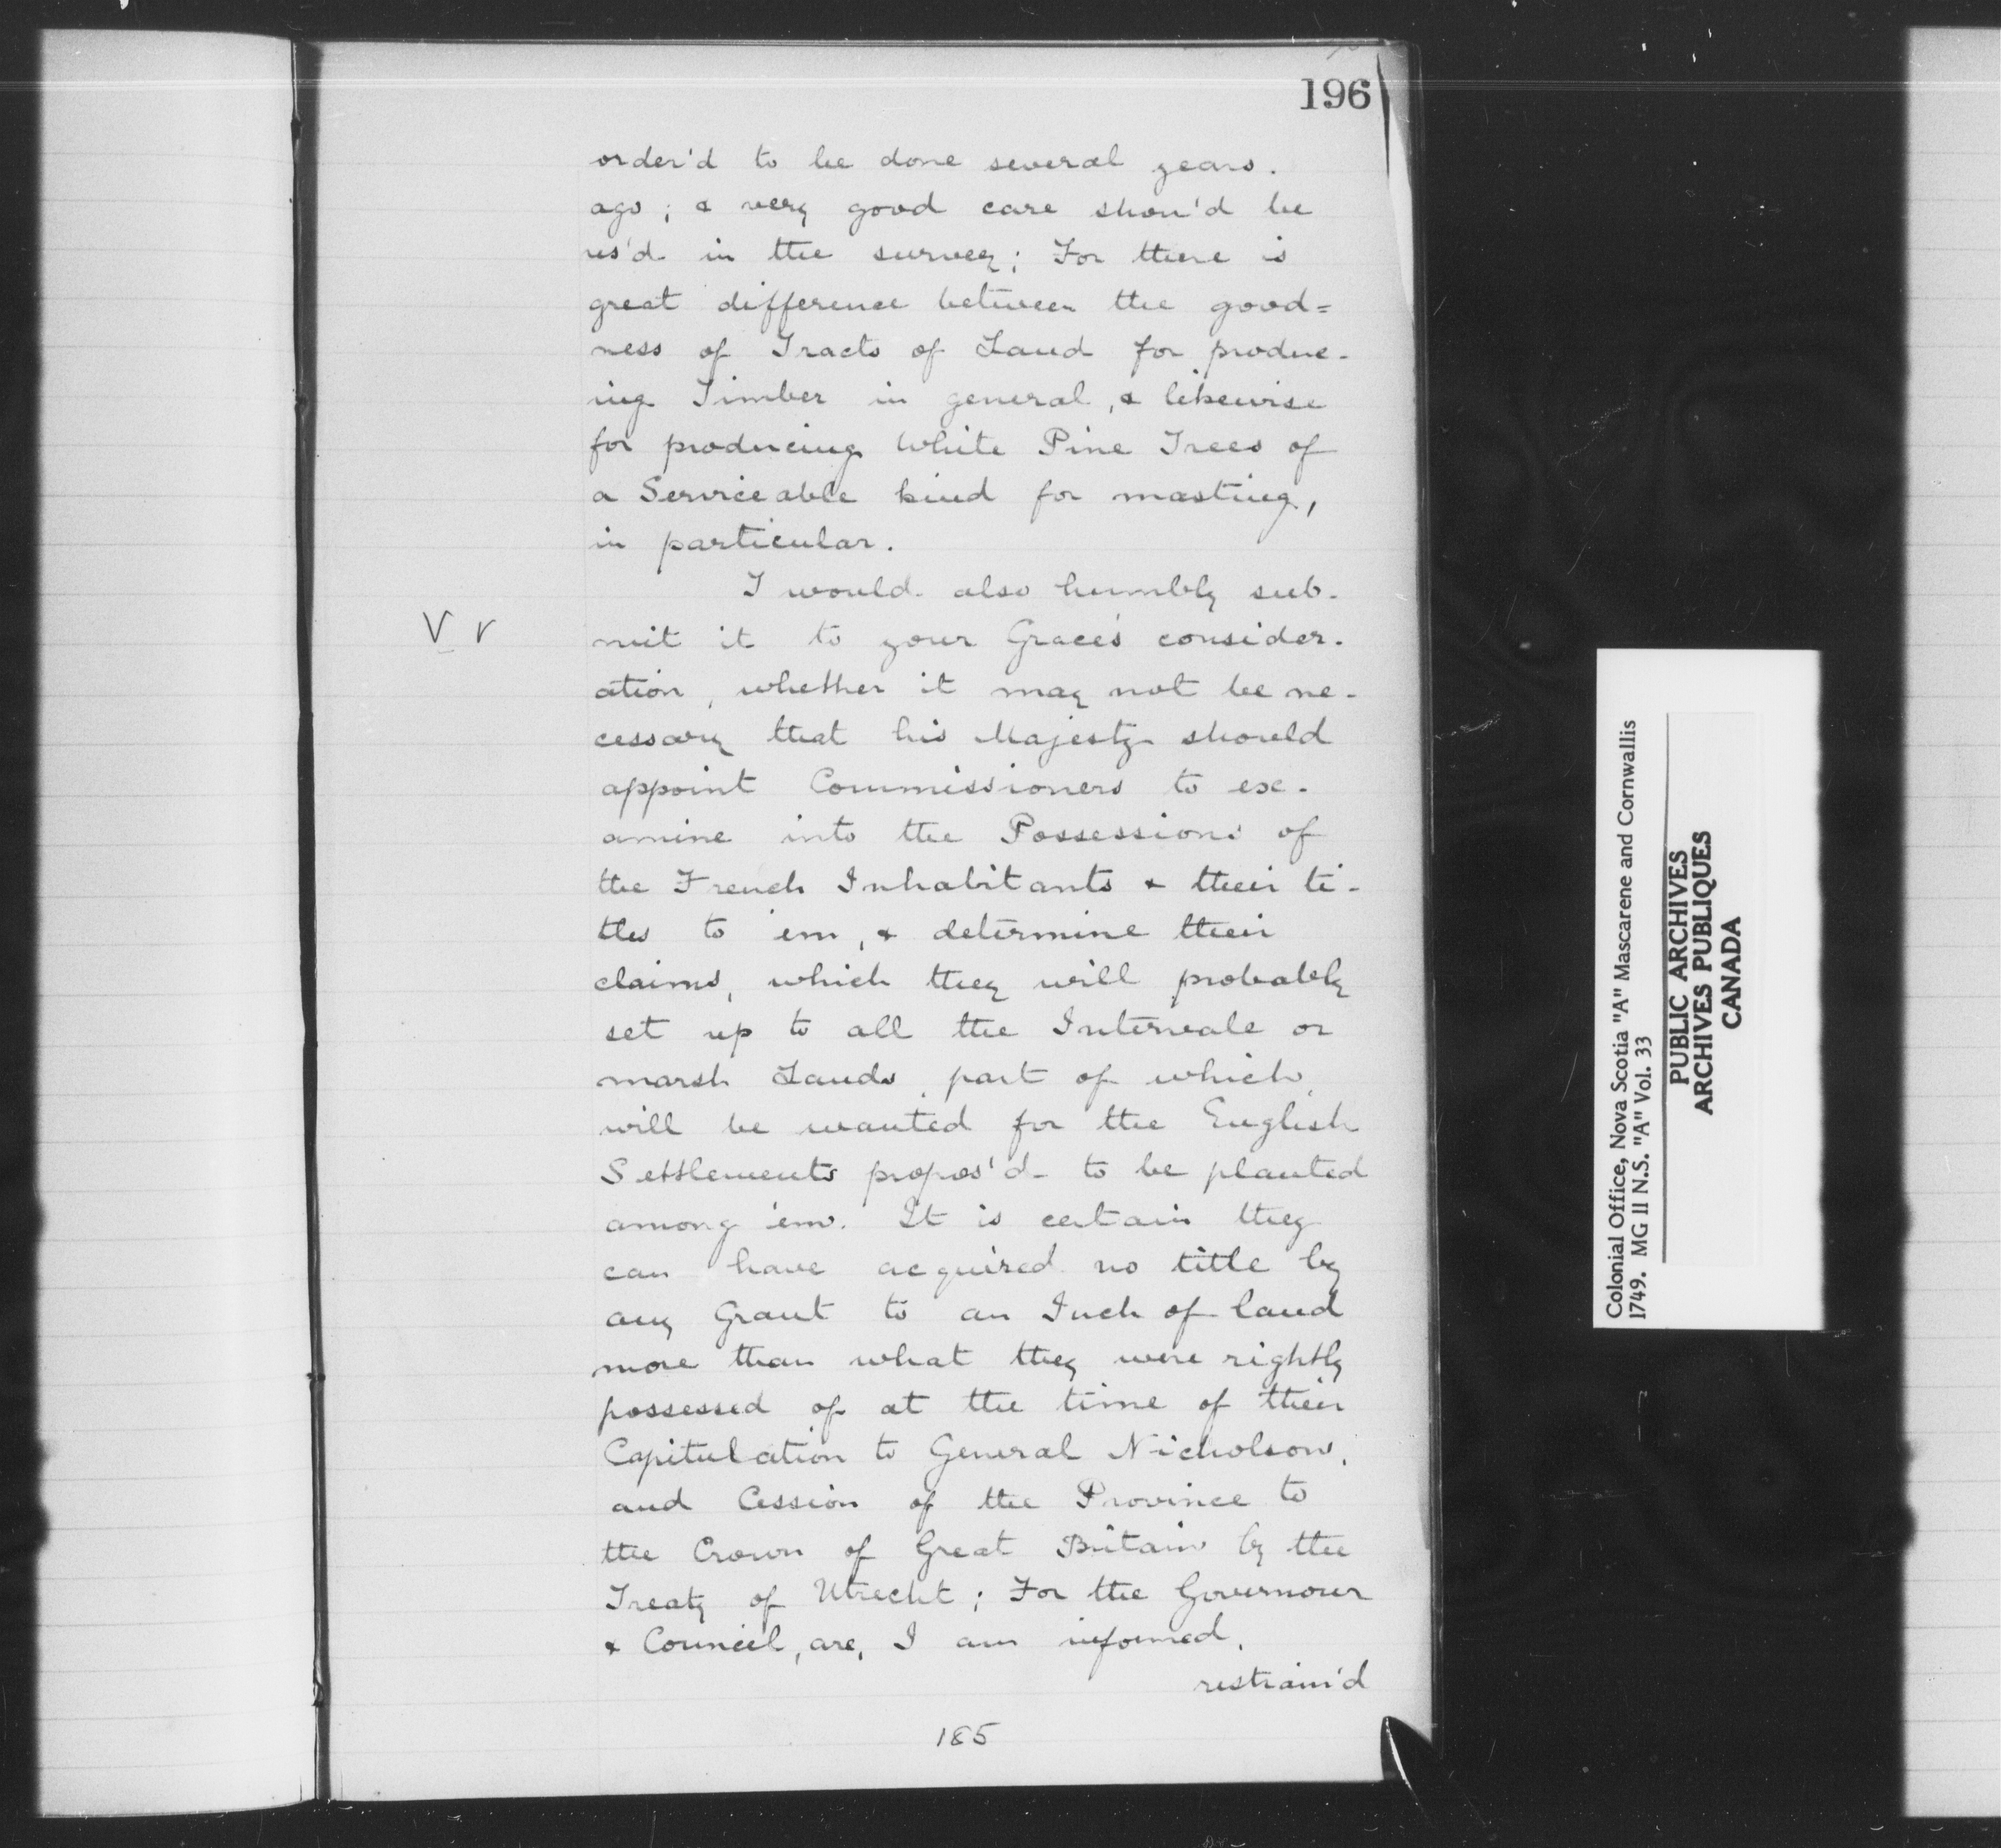 196
order'd to be done several years.
ago; & very good care shou'd be
us'd in the survey; For there is
great difference between the good=
ness of Tracts of Land for produc-
ing Timber in general, & likewise
for producing White Pine Trees of
a Serviceable kind for masting,
in particular.
I would also humbly sub-
V v
mit it to your Grace's consider-
ation, whether it may not be ne-
cessary that his Majesty should
appoint Commissioners to ex-
amine into the Possessions of
the French Inhabitants & their ti-
tles to 'em, & determine their
claims, which they will probably
set up to all the Intervale or
marsh Lands part of which
will be wanted for the English
Settlements propos'd to be planted
among 'em. It is certain they
can have acquired no title by
any Grant to an Inch of land
more than what they were rightly
possessed of at the time of their
Capitulation to General Nicholson,
and Cession of the Province to
the Crown of Great Britain by the
Treaty of Utrecht; For the Governour
& Council, are, I am informed,
restrain'd
185
Colonial Office, Nova Scotia "A" Mascarene and Cornwallis
1749. MG II N.S. "A" Vol. 33
PUBLIC ARCHIVES
ARCHIVES PUBLIQUES
CANADA